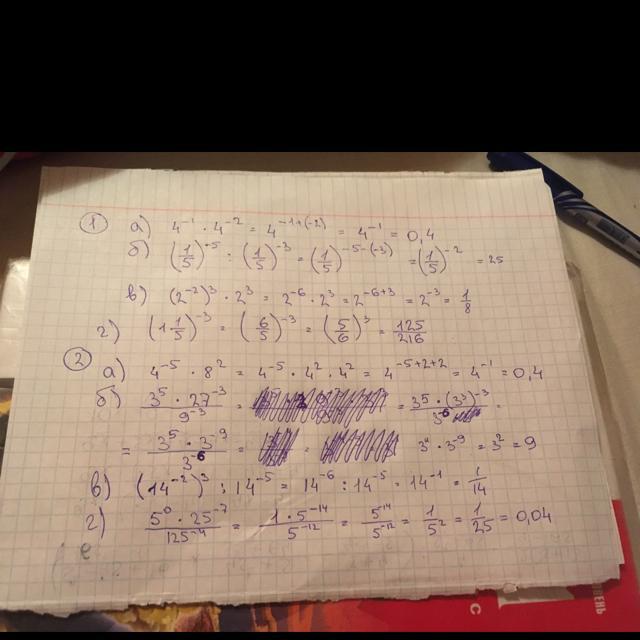 1 а) 4⁻¹ · 4⁻² = 4⁻¹⁺⁽⁻²⁾ = 4⁻¹ = 0,4
б) (1/5)⁻⁵ : (1/5)⁻³ = (1/5)⁻⁵⁻⁽⁻³⁾ = (1/5)⁻² = 25
в) (2⁻²)³ · 2³ = 2⁻⁶ · 2³ = 2⁻⁶⁺³ = 2⁻³ = 1/8
г) (1 1/5)⁻³ = (6/5)⁻³ = (5/6)³ = 125/216
2 а) 4⁻⁵ · 8² = 4⁻⁵ · 4² · 4² = 4⁻⁵⁺²⁺² = 4⁻¹ = 0,4
б) 3⁵ · 27⁻³ / 9⁻³ = = 3⁵ · (3³)⁻³ / 3⁻⁶ =
= 3⁵ · 3⁻⁹ / 3⁻⁶ = = · 3⁻⁹ = 3² = 9
в) (14⁻²)³ : 14⁻⁵ = 14⁻⁶ : 14⁻⁵ = 14⁻¹ = 1/14
г) 5⁰ · 25⁻⁷ / 125⁻⁴ = 1 · 5⁻¹⁴ / 5⁻¹² = 5¹⁴ / 5⁻¹² = 1/5² = 1/25 = 0,04
С